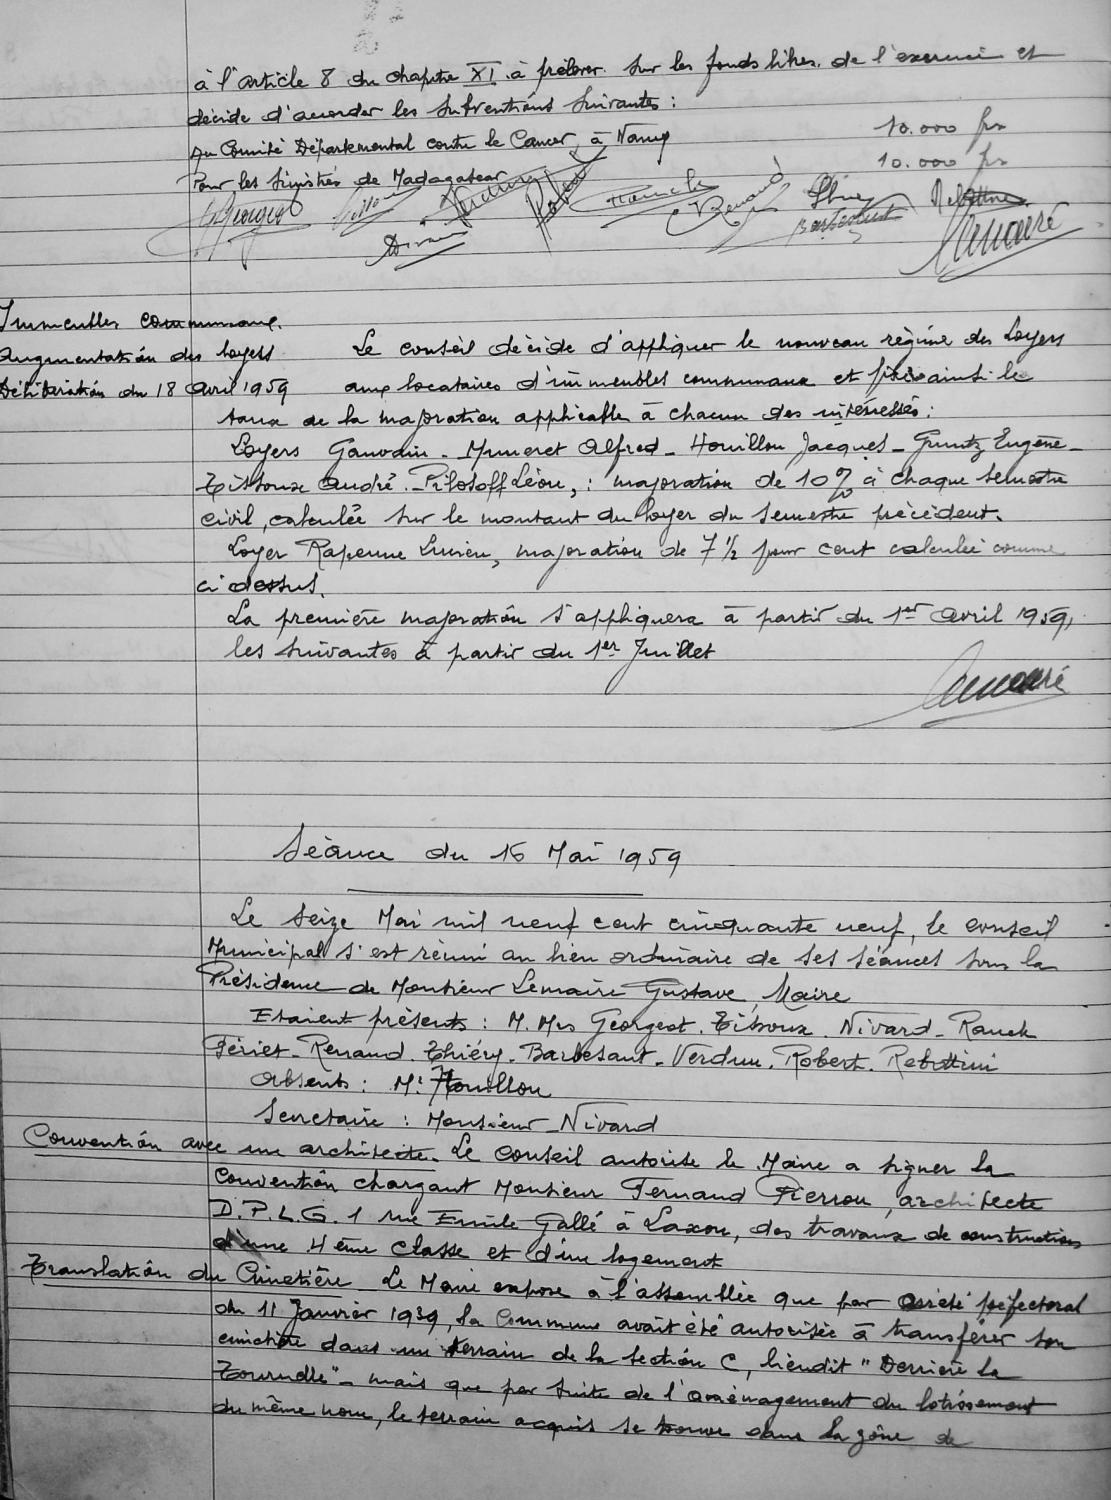 à l'article 8 du chapitre XI à prélever sur les fonds libres de l'exercice et
décide d'accorder les subventions suivantes :
Au Comité Départemental contre le Cancer, à Nancy 10.000 frs
Pour les sinistrés de Madagascar 10.000 frs
Georgeot Robert Ranck Renaud Barbesant Rebottini
Nivard Lemaire
Immeubles communaux.
Augmentation des loyers
Délibération du 18 avril 1959
Le conseil décide d'appliquer le nouveau régime des loyers
aux locataires d'immeubles communaux et fixe ainsi le
taux de la majoration applicable à chacun des intéressés :
Loyers Gauvain - Muneret Alfred - Houillon Jacques - Guntz Eugène -
Tissoux André - Pilosoff Léon, : majoration de 10% à chaque semestre
civil, calculée sur le montant du loyer du semestre précédent.
Loyer Rapenne Lucien, majoration de 7 1/2 pour cent calculée comme
ci dessus.
La première majoration s'appliquera à partir du 1er avril 1959,
les suivantes à partir du 1er Juillet
Lemaire
Séance du 16 Mai 1959
Le seize Mai mil neuf cent cinquante neuf, le conseil
Municipal s'est réuni au lieu ordinaire de ses séances sous la
Présidence de Monsieur Lemaire Gustave, Maire
Etaient présents : M. Mrs Georgeot. Tissoux. Nivard - Ranck
Fériet - Renaud. Thiéry - Barbesant - Verdun. Robert. Rebottini
Absents : Mr Houillon
Secrétaire : Monsieur Nivard
Convention avec un architecte. Le Conseil autorise le Maire a signer la
Convention chargeant Monsieur Fernand Pierron, architecte
D.P.L.G. 1 rue Emile Gallé à Laxou, des travaux de construction
d'une 4ème classe et d'un logement
Translation du Cimetière Le Maire expose à l'assemblée que par arrêté préfectoral
du 11 Janvier 1939, la Commune avait été autorisée à transférer son
cimetière dans un terrain de la section C, lieudit "Derrière la
Tournelle" - mais que par suite de l'aménagement du lotissement
du même nom, le terrain acquis se trouve dans la zône de